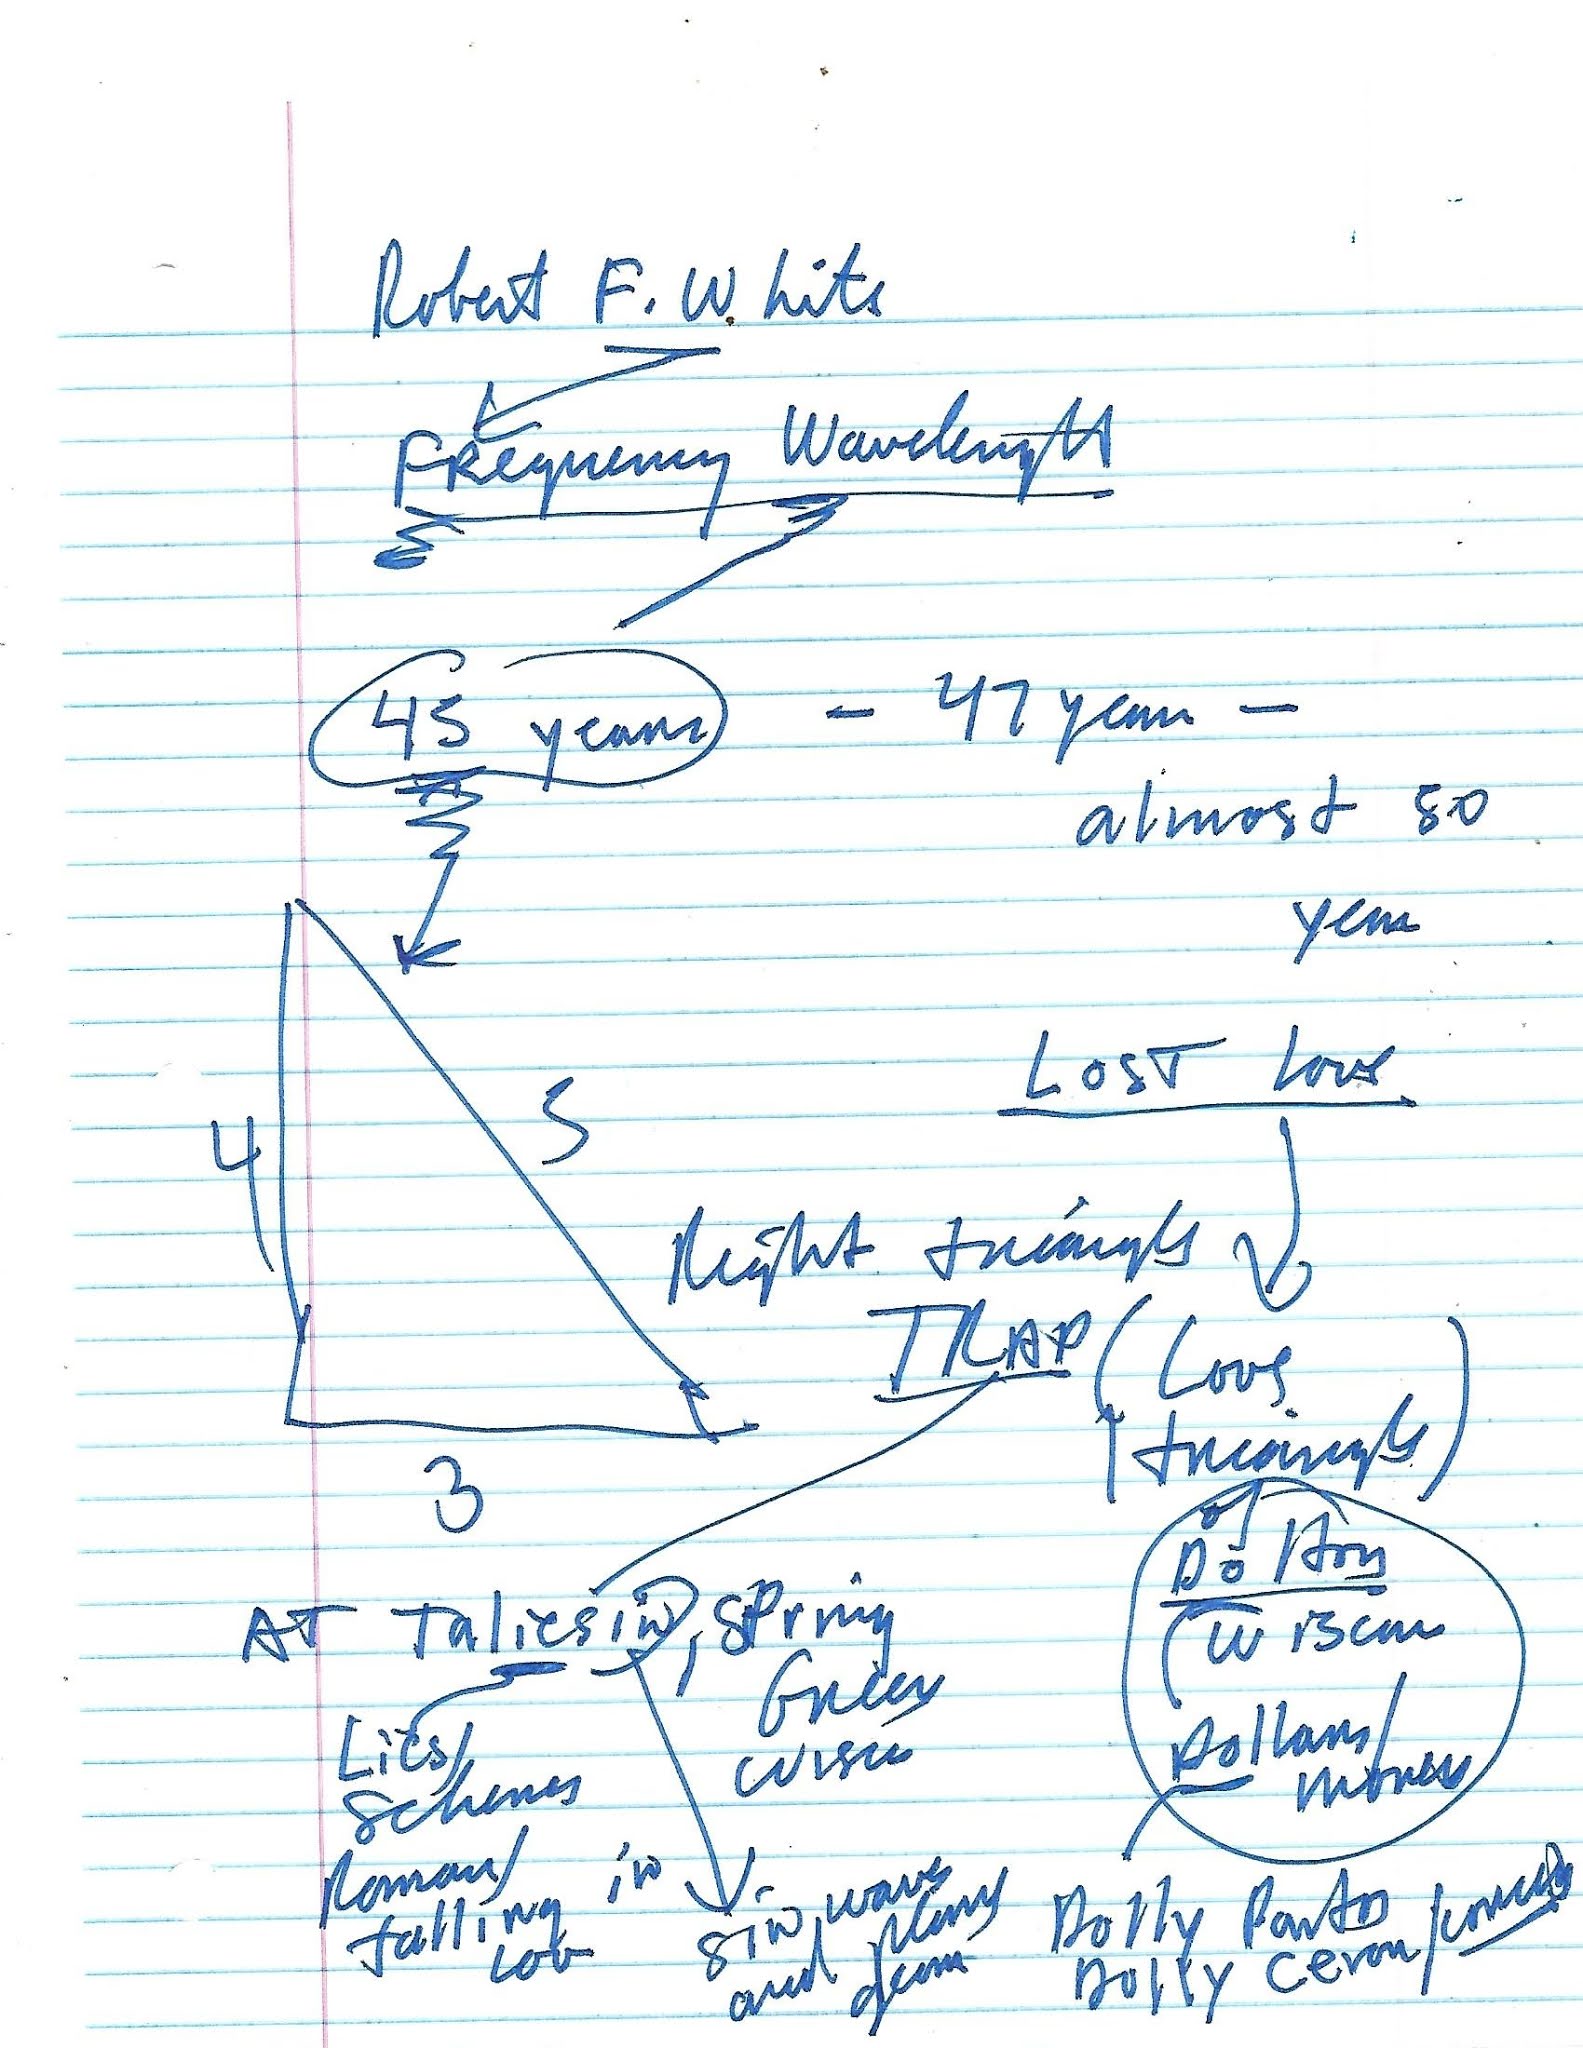 Robert F. White
Frequency Wavelength
45 years - 47 years -
almost 50
years
LOST love
4
5
Right triangle
TRAP (Love
triangle)
3
of
Dolton
AT Taliesin, Spring
(Wiscon
Green
Wisco
Dollars/
money
Lies/
Schemes
Roman/
falling in
Love
sin wave
and
Dolly Parton
Dolly Ceron/